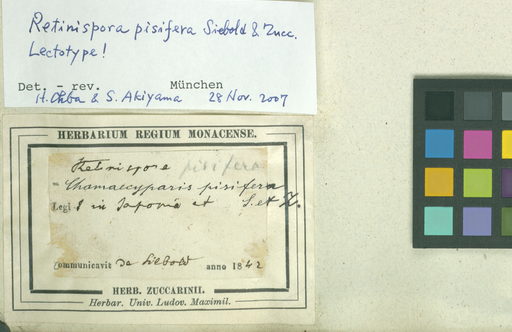 Retinispora pisifera Siebold & Zucc.
Lectotype!
Det. - rev. München
H. Ohba & S. Akiyama 28 Nov. 2007
HERBARIUM REGIUM MONACENSE.
Retinispora pisifera
= Chamaecyparis pisifera
Legi in Japonia et S. et Z.
Communicavit De Siebold anno 1842
HERB. ZUCCARINII.
Herbar. Univ. Ludov. Maximil.